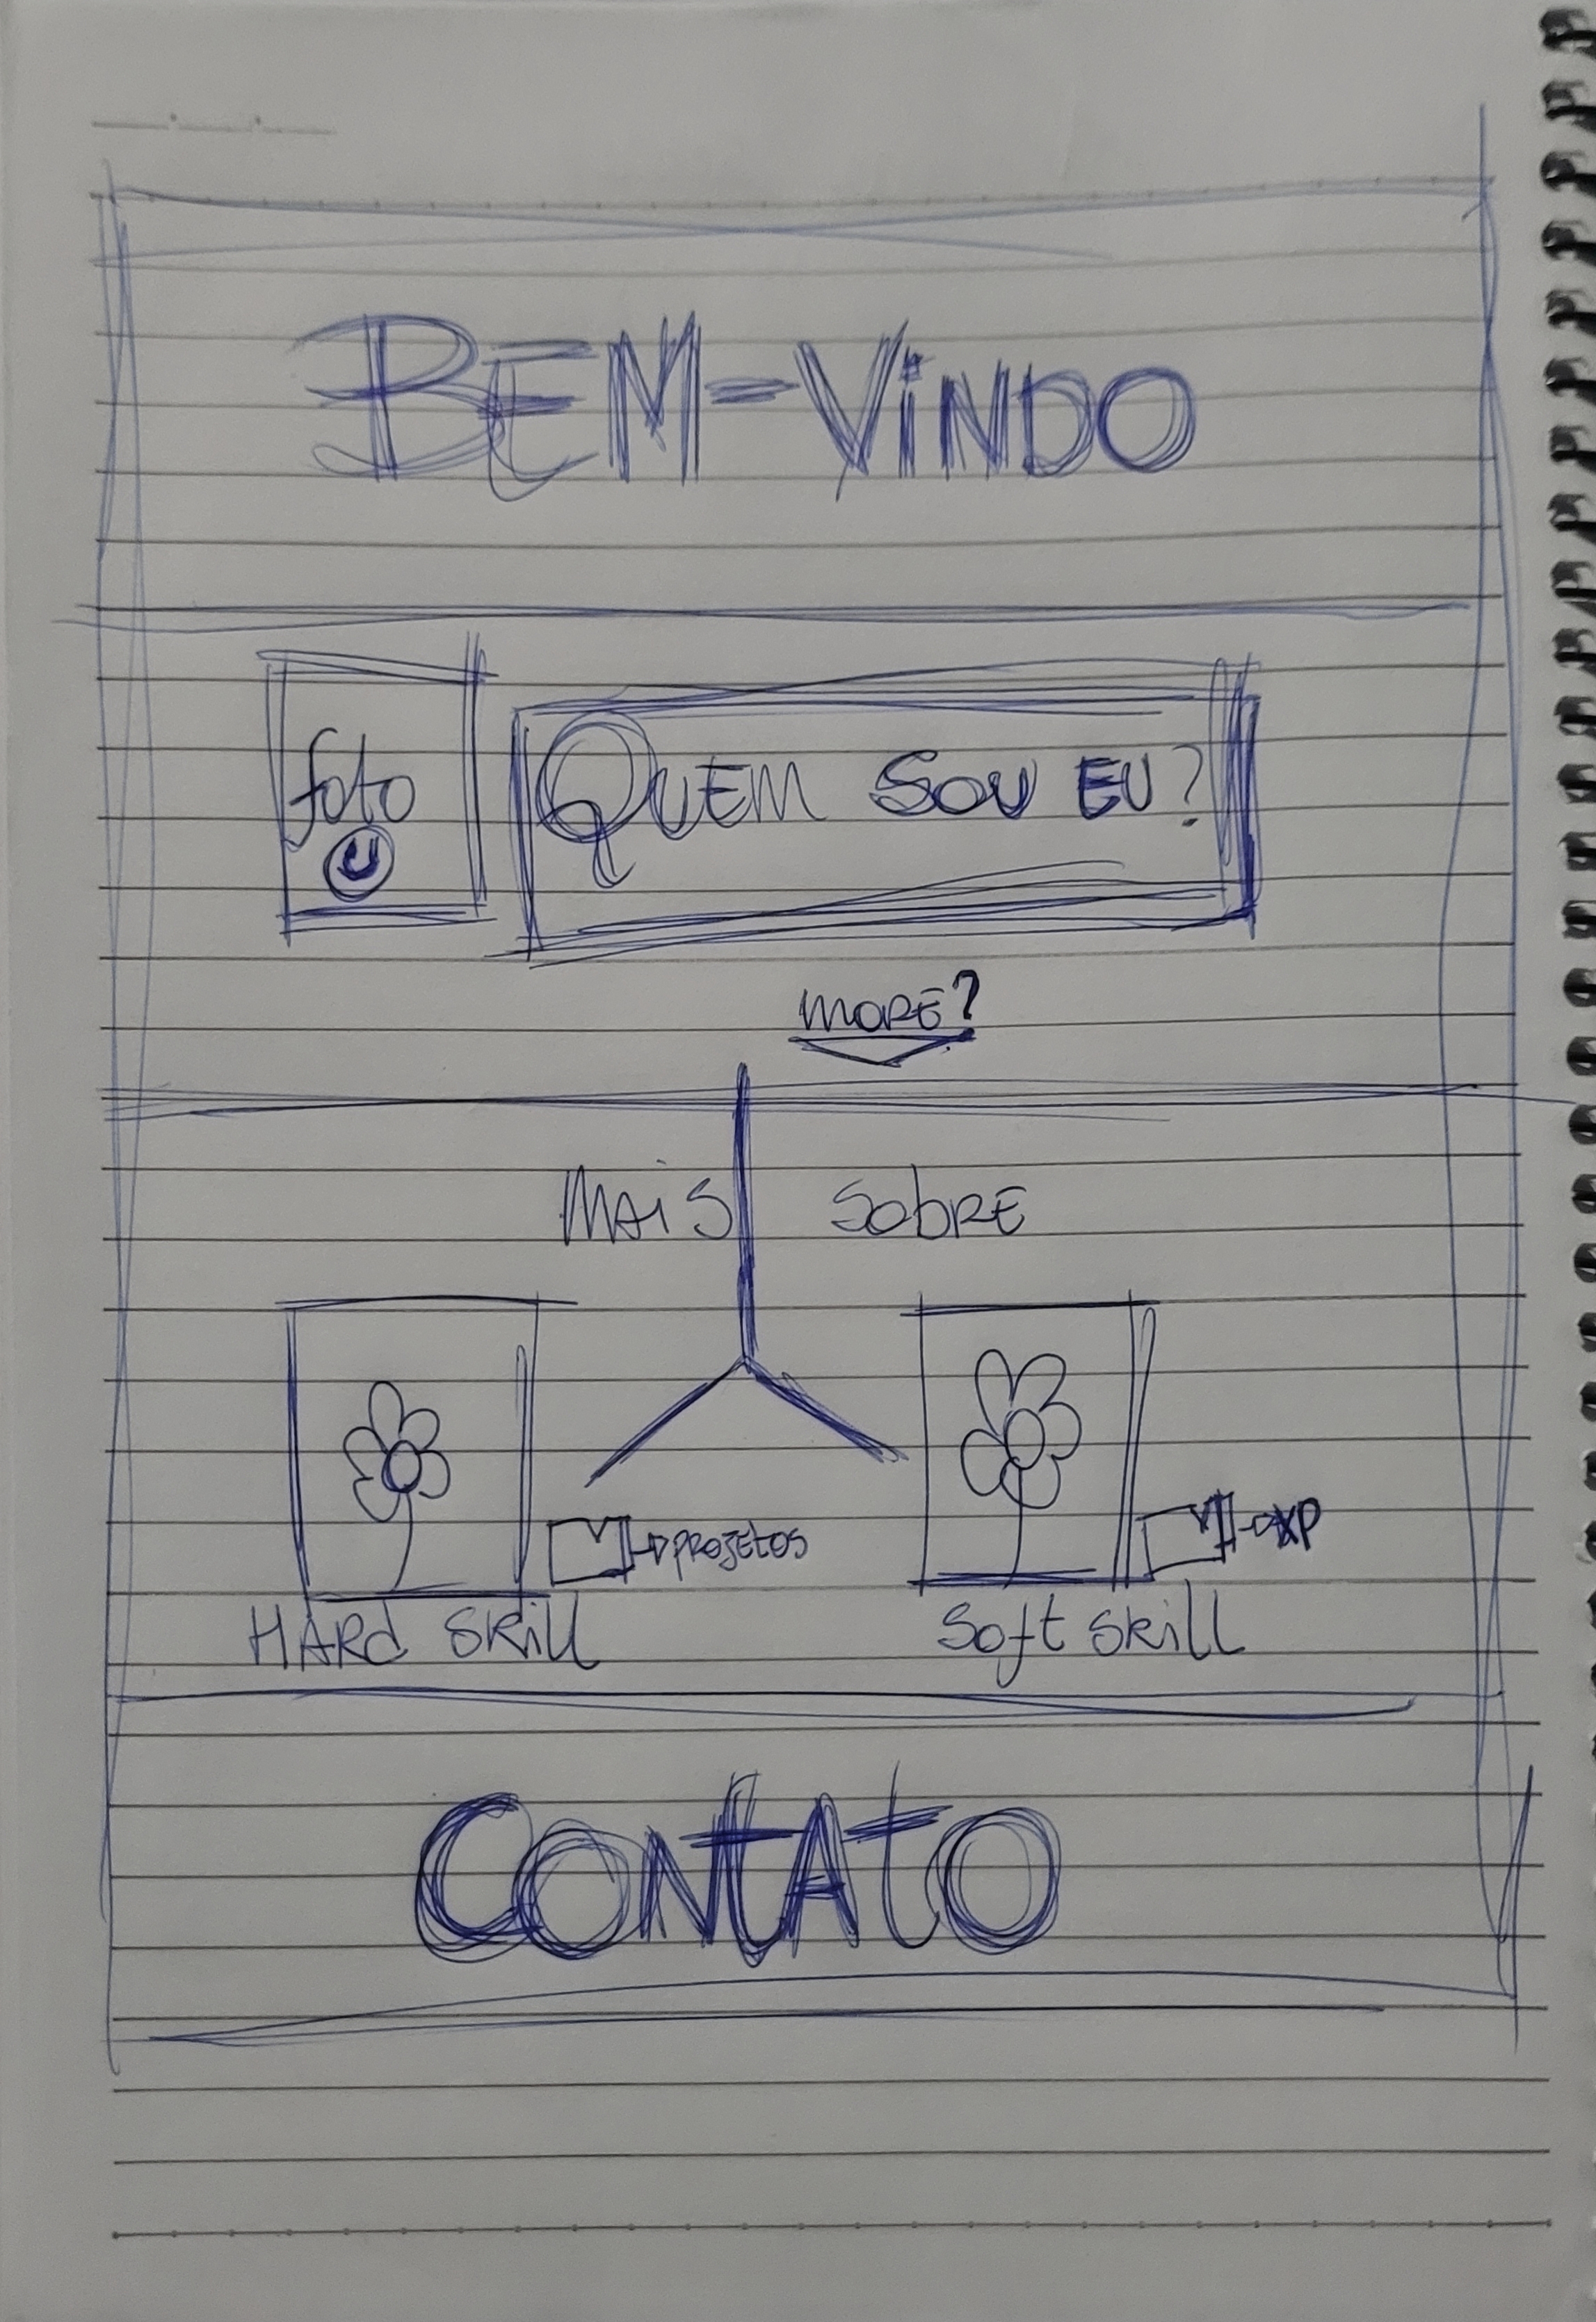 BEM-ViNDO
foto
QUEM SOU EU?
MORE?
MAiS SobRE
PROJEtOS
XP
HARd SKill
Soft SKill
CONtAtO